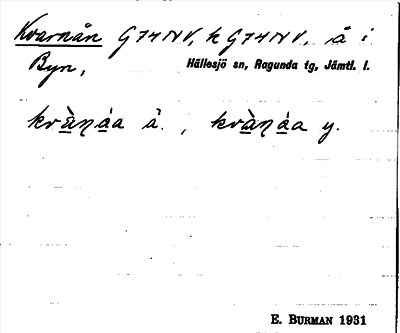 Kvarnån G74NV, k G74NV, å i
Byn, Hällesjö sn, Ragunda tg, Jämtl. l.
kvàṇáa å. , kvàṇáa y.
E. BURMAN 1931